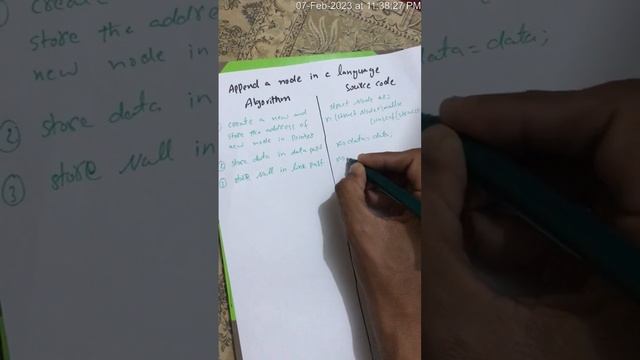 07-Feb-2023 at 11:38:27 PM
Append a node in c language
Algorithm
Source code
① create a new and
store the address of
new node in Pointer
② store data in data part
③ store Null in link part
struct Node *
n= (struct Node*) malloc
(sizeof(struct
n->data=data;
create
store the addre
new node in
② store data in
③ store Null in
data = data;